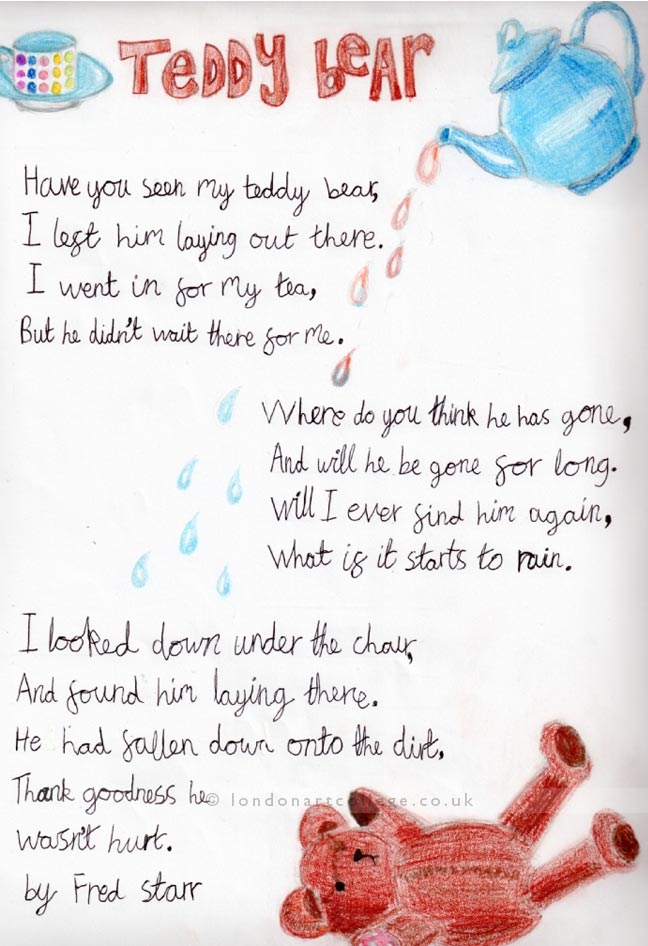 TEDDY BEAR
Have you seen my teddy bear,
I left him laying out there.
I went in for my tea,
But he didn't wait there for me.
Where do you think he has gone,
And will he be gone for long.
Will I ever find him again,
What if it starts to rain.
I looked down under the chair,
And found him laying there.
He had fallen down onto the dirt,
Thank goodness he
© londonartcollege.co.uk
wasn't hurt.
by Fred Starr